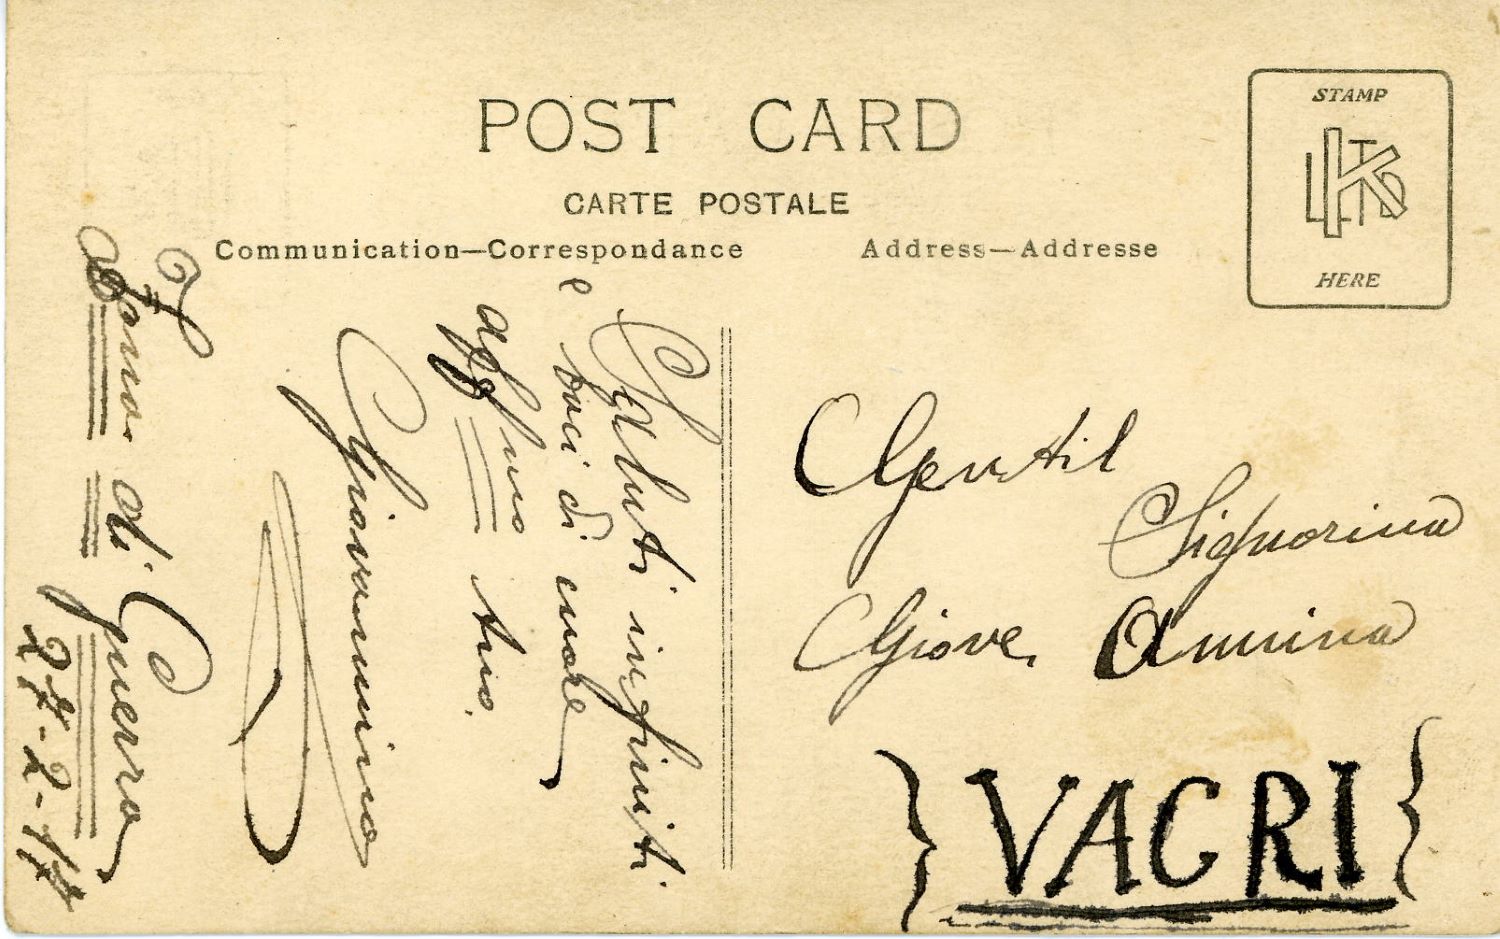 POST CARD
CARTE POSTALE
Communication—Correspondance
Address—Addresse
STAMP
HERE
Saluti infiniti
e baci di cuore
aff/mo tuo.
Giovannino
Zona di Guerra
27-2-17
Gentil
Signorina
Giove Annina
VACRI